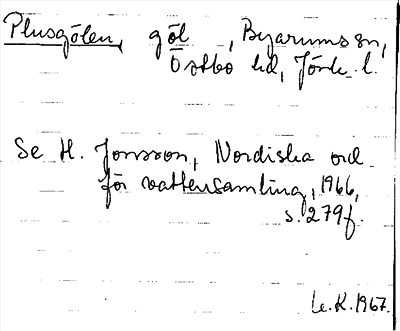 Plusgölen, göl, Byarums sn,
Östbo hd, Jönk. l.
Se H. Jonsson, Nordiska ord
för vattensamling, 1966,
s. 279f.
Le.K. 1967.